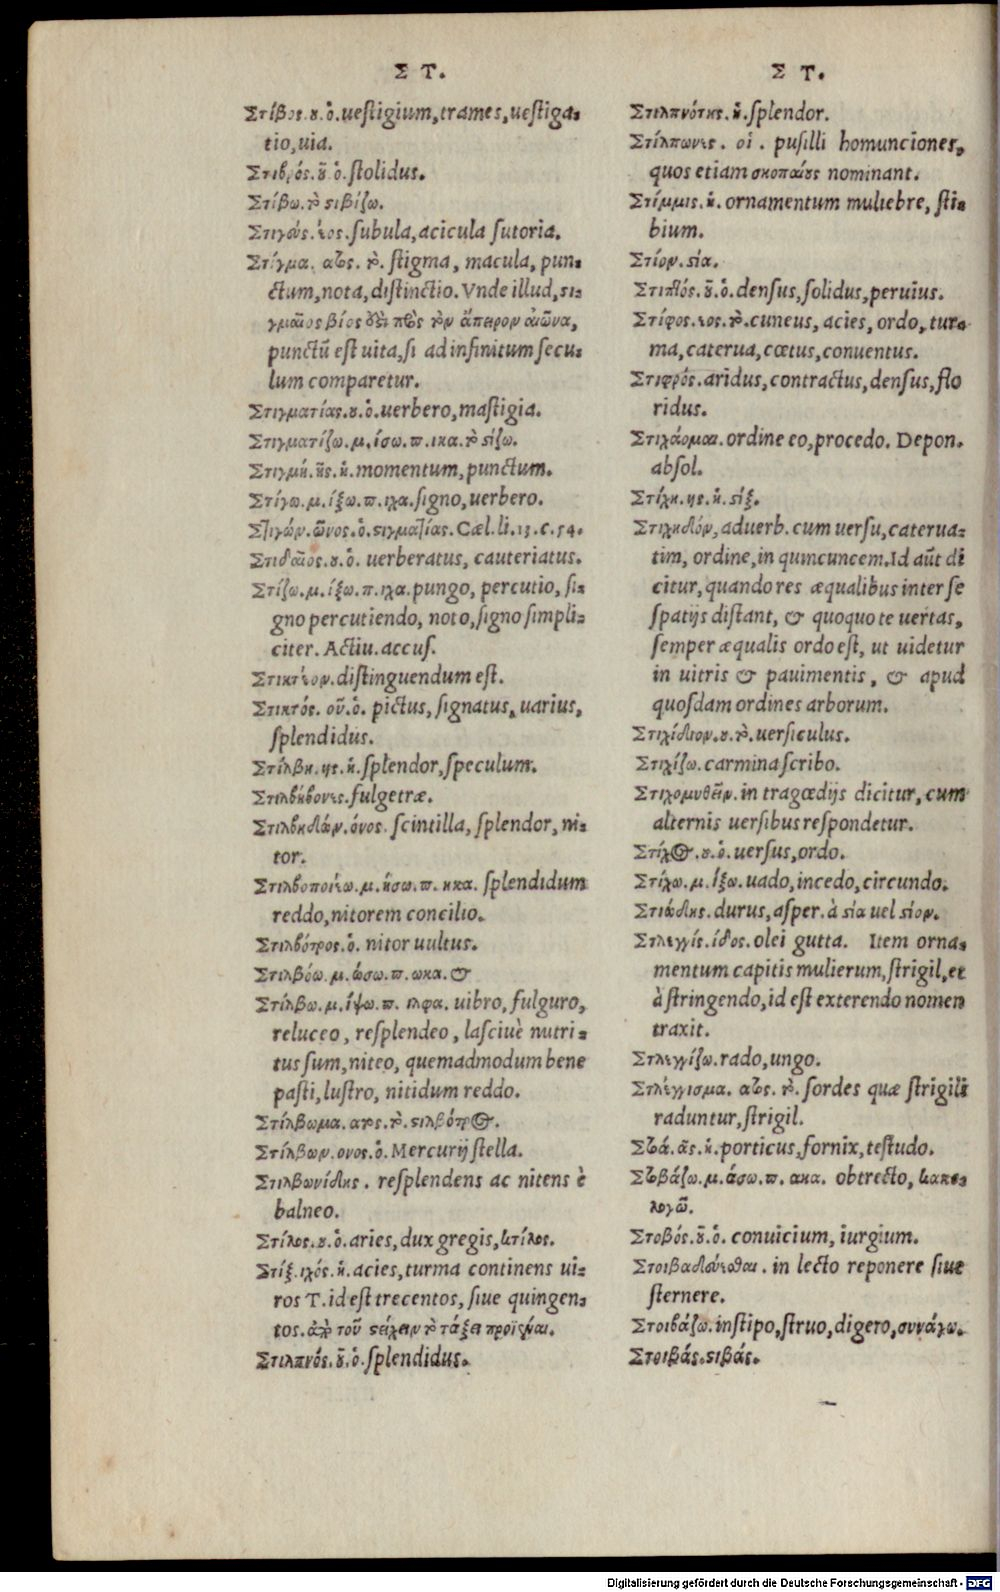 Σ Τ.
Στίβος.ȣ.ὁ.ueſtigium,trames,ueſtiga-
tio,uia.
Στιβρός.ȣ͂.ὁ.ſtolidus.
Στίβω.τὸ ϛιβίζω.
ſubula,acicula ſutoria.
Στίγμα.ατος.τὸ.ſtigma, macula, pun-
ctum,nota,diſtinctio. Vnde illud,ϛι-
γμαῖος βίος ὡς πρὸς τὸν ἄπειρον αἰῶνα,
punctũ eſt uita,ſi ad infinitum ſecu-
lum comparetur.
Στιγματίας.ȣ.ὁ.uerbero,maſtigia.
Στιγματίζω.μ.ίσω.π.ικα.τὸ ϛίζω.
Στιγμή.ῆς.ἡ.momentum,punctum.
Στίγω.μ.ίξω.π.ιχα.ſigno,uerbero.
Στιγών.ῶνος.ὁ.ϛιγματίας. Cæl.li.13.c.54.
ȣ.ὁ. uerberatus, cauteriatus.
Στίζω.μ.ίξω.π.ιχα.pungo, percutio, ſi-
gno percutiendo, noto,ſigno ſimpli-
citer. Actiu.accuſ.
Στικτέον.diſtinguendum eſt.
Στικτός. οῦ.ὁ. pictus, ſignatus, uarius,
ſplendidus.
Στίλβη.ης.ἡ.ſplendor,ſpeculum.
Στιλβήβονες.fulgetræ.
Στιλβηδών.όνος. ſcintilla, ſplendor, ni-
tor.
Στιλβοποιέω.μ.ήσω.π. ηκα. ſplendidum
reddo,nitorem concilio.
Στιλβότρος.ὁ. nitor uultus.
Στιλβόω.μ.ώσω.π.ωκα.&
Στίλβω.μ.ίψω.π. ιλφα. uibro, fulguro,
reluceo, reſplendeo, laſciuè nutri-
tus ſum,niteo, quemadmodum bene
paſti,luſtro, nitidum reddo.
Στίλβωμα.ατος.τὸ.ϛιλβότρος.
Στίλβων.ονος.ὁ.Mercurij ſtella.
Στιλβωνίδης. reſplendens ac nitens è
balneo.
Στίλος.ȣ.ὁ.aries,dux gregis,κτίλος.
Στίξ.ιχός.ἡ.acies,turma continens ui-
ros T.id eſt trecentos, ſiue quingen-
tos.ἀπὸ τοῦ ϛείχειν τὸ τάξει προϊέναι.
Στιλπνός.ȣ͂.ὁ.ſplendidus.
Σ Τ.
Στιλπνότης.ἡ.ſplendor.
Στίλπωνες. οἱ. puſilli homunciones,
quos etiam σκοπαίȣς nominant.
Στίμμις.ἡ. ornamentum muliebre, ſti-
bium.
Στίον.ϛία.
Στιπτός.ȣ͂.ὁ.denſus,ſolidus,peruius.
Στίφος.εος.τὸ.cuneus, acies, ordo, tur-
ma,caterua,cœtus,conuentus.
Στιφρός.aridus,contractus,denſus,flo
ridus.
Στιχάομαι.ordine eo,procedo. Depon.
abſol.
Στίχη.ης.ἡ.ϛίξ.
Στιχηδόν, aduerb. cum uerſu,caterua-
tim, ordine,in qumcuncem.Id aũt di
citur,quando res æqualibus inter ſe
ſpatijs diſtant, & quoquo te uertas,
ſemper æqualis ordo eſt, ut uidetur
in uitris & pauimentis, & apud
quoſdam ordines arborum.
Στιχίδιον.ȣ.τὸ.uerſiculus.
Στιχίζω.carmina ſcribo.
Στιχομυθεῖν.in tragœdijs dicitur, cum
alternis uerſibus reſpondetur.
Στίχος.ȣ.ὁ.uerſus,ordo.
Στίχω.μ.ίξω.uado,incedo,circundo.
Στιώδης.durus,aſper.à ϛία uel ϛίον.
Στλεγγίς.ίδος.olei gutta. Item orna-
mentum capitis mulierum,ſtrigil,et
à ſtringendo,id eſt exterendo nomen
traxit.
Στλεγγίζω.rado,ungo.
Στλέγγισμα. ατος. τὸ.ſordes quæ ſtrigili
raduntur,ſtrigil.
Στοά.ᾶς.ἡ.porticus,fornix,teſtudo.
Στοβάζω.μ.άσω.π.ακα. obtrecto, κακο-
λογῶ.
Στοβός.ȣ͂.ὁ. conuicium, iurgium.
Στοιβαδεύεσθαι. in lecto reponere ſiue
ſternere.
Στοιβάζω.inſtipo,ſtruo,digero,συνάγω.
Στοιβάς.ϛιβάς.
Digitalisierung gefördert durch die Deutsche Forschungsgemeinschaft - DFG